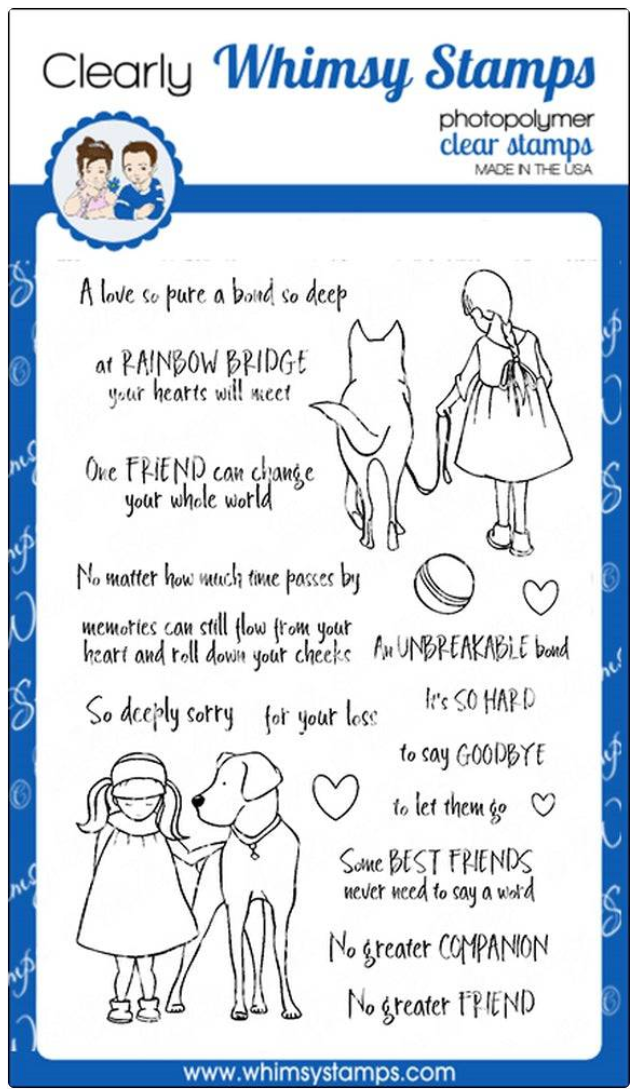 Clearly Whimsy Stamps
photopolymer
clear stamps
MADE IN THE USA
A love so pure a bond so deep
at RAINBOW BRIDGE
your hearts will meet
One FRIEND can change
your whole world
No matter how much time passes by
memories can still flow from your
heart and roll down your cheeks
An UNBREAKABLE bond
It's SO HARD
So deeply sorry for your loss
to say GOODBYE
to let them go
Some BEST FRIENDS
never need to say a word
No greater COMPANION
No greater FRIEND
www.whimsystamps.com